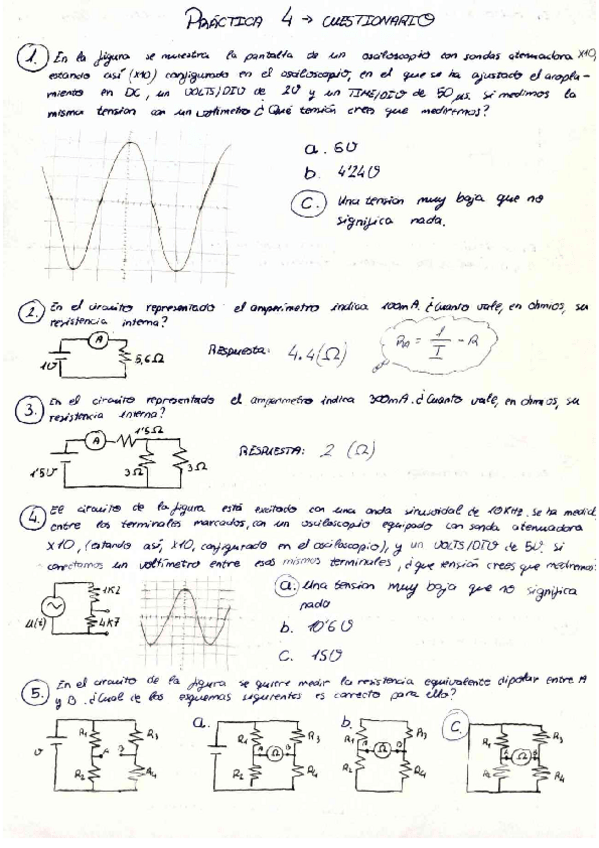 PRÁCTICA 4 → CUESTIONARIO
1. En la figura se muestra la pantalla de un osciloscopio con sondas atenuadora X10,
estando así (X10) configurado en el osciloscopio, en el que se ha ajustado el acopla-
miento en DC, un VOLTS/DIV de 2V y un TIME/DIV de 50 μs. Si medimos la
misma tension con un voltimetro ¿Qué tensión crees que mediremos?
a. 6V
b. 4'24V
c. Una tension muy baja que no
significa nada.
2. En el circuito representado el amperimetro indica 100mA. ¿Cuanto vale, en ohmios, su
resistencia interna?
A
5,6Ω
1V
RESPUESTA: 4.4 (Ω)
RA = 1/I - R
3. En el circuito representado el amperimetro indica 300mA. ¿Cuanto vale, en ohmios, su
resistencia interna?
A
1'5Ω
1'5V
3Ω
3Ω
RESPUESTA: 2 (Ω)
4. El circuito de la figura está excitado con una onda sinusoidal de 10KHz. Se ha medid
entre los terminales marcados, con un osciloscopio equipado con sonda atenuadora
X10, (estando así, X10, configurado en el osciloscopio), y un VOLTS/DIV de 5V. Si
conectamos un voltimetro entre esos mismos terminales, ¿que tensión crees que mediremos?
1K2
4K7
u(t)
a. Una tension muy baja que no significa
nada
b. 10'6V
c. 15V
5. En el circuito de la figura se quiere medir la resistencia equivalente dipolar entre A
y B. ¿Cual de los esquemas siguientes es correcto para ello?
V
R1
R2
R3
R4
A
B
a.
R1
R2
R3
R4
A
Ω
B
b.
R1
R2
R3
R4
A
Ω
B
c.
R1
R2
R3
R4
A
Ω
B